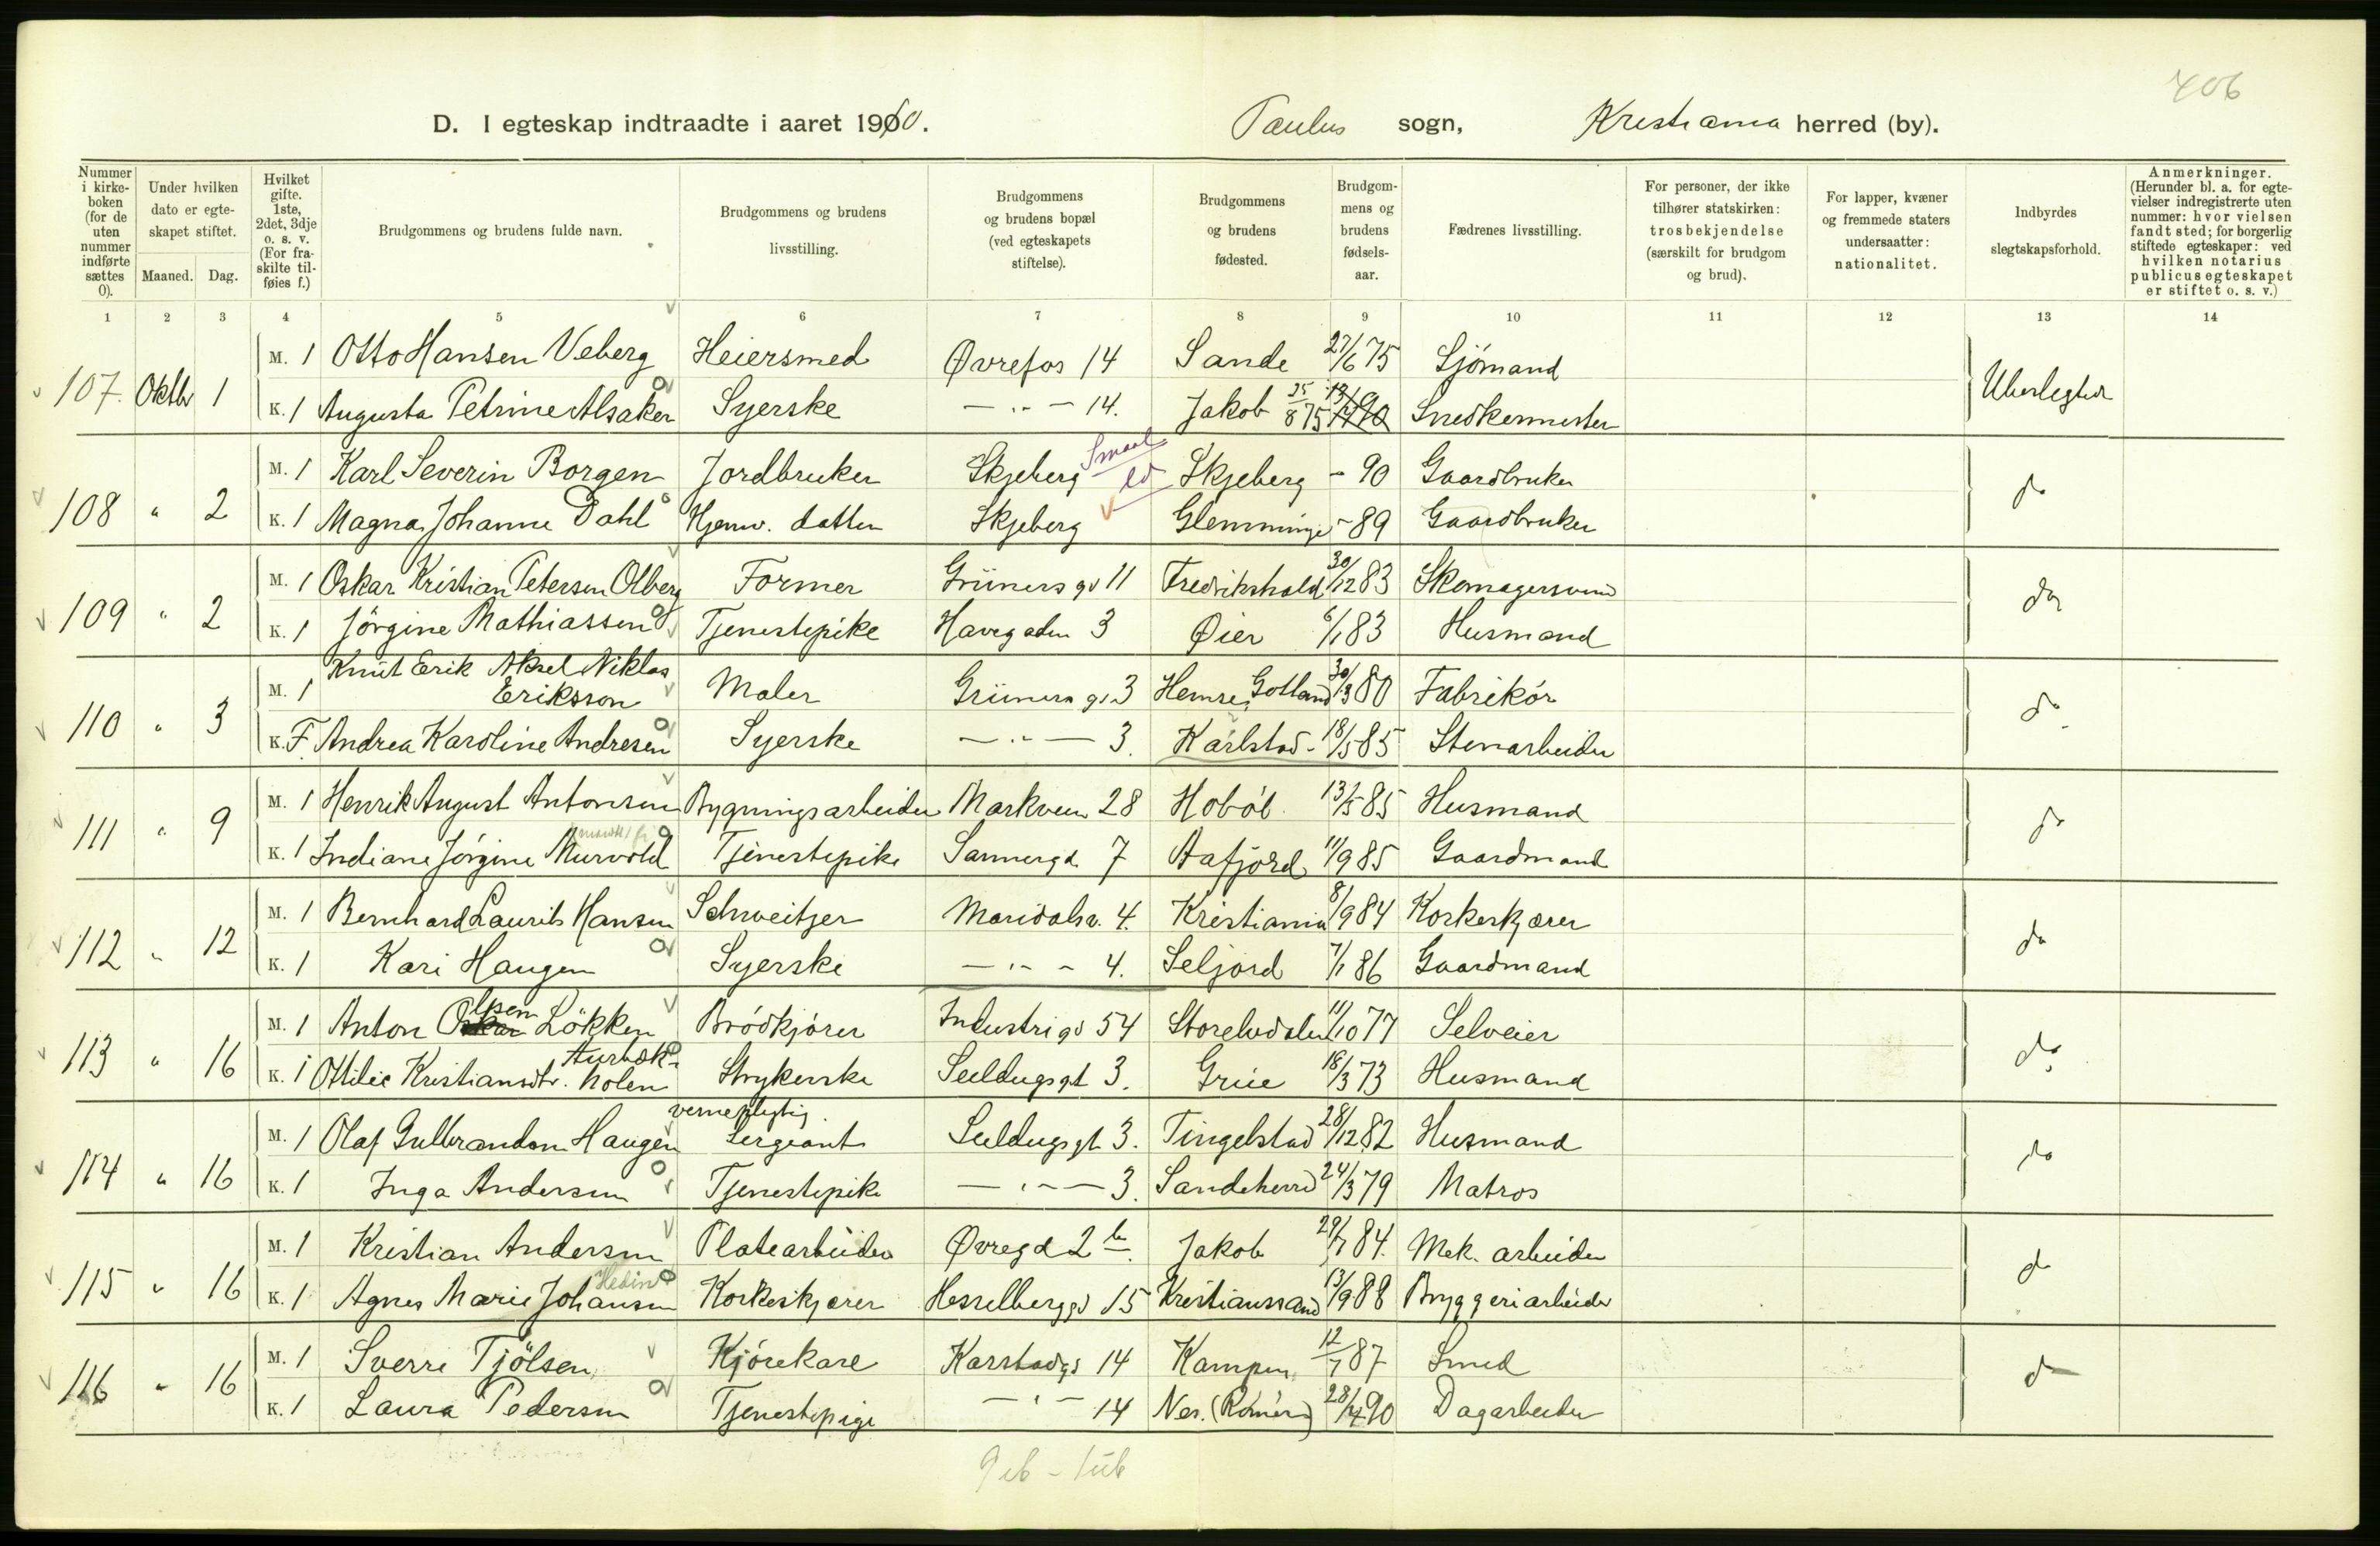 406
D. I egteskap indtraadte i aaret 1910. Paulus sogn, Kristiania herred (by).
Nummer i kirke-boken (for de uten nummer indførte sættes 0).
Under hvilken dato er egte-skapet stiftet.
Maaned. Dag.
Hvilket gifte. 1ste, 2det, 3dje o. s. v. (For fra-skilte til-føies f.)
Brudgommens og brudens fulde navn.
Brudgommens og brudens livsstilling.
Brudgommens og brudens bopæl (ved egteskapets stiftelse).
Brudgommens og brudens fødested.
Brudgom-mens og brudens fødsels-aar.
Fædrenes livsstilling.
For personer, der ikke tilhører statskirken: trosbekjendelse (særskilt for brudgom og brud).
For lapper, kvæner og fremmede staters undersaatter: nationalitet.
Indbyrdes slegtskapsforhold.
Anmerkninger. (Herunder bl. a. for egte-vielser indregistrerte uten nummer: hvor vielsen fandt sted; for borgerlig stiftede egteskaper: ved hvilken notarius publicus egteskapet er stiftet o. s. v.)
1 2 3 4 5 6 7 8 9 10 11 12 13 14
107. Oktbr 1 M. 1 Otto Hansen Veberg Heiersmed Øvrefos 14 Sande 27/6 75 Sjömand Ubeslegted
K. 1 Augusta Petrine Alsaker Syerske — " — 14. Jakob 25/8 75 Snedkermester
108 " 2 M. 1 Karl Severin Borgen Jordbruker Skjeberg Smaal Skjeberg - 90 Gaardbruker do
K. 1 Magna Johanne Dahl Hjemv. datter Skjeberg Glemminge - 89 Gaardbruker
109 " 2 M. 1 Oskar Kristian Petersen Olberg Former Grüners gd 11 Fredrikshald 30/12 83 Skomagersvend do
K. 1 Jörgine Mathiassen Tjenestepike Havegaden 3 Øier 6/1 83 Husmand
110 " 3 M. 1 Knut Erik Aksel Niklas Eriksson Maler Grüners gd 3 Hemse, Gotland 30/3 80 Fabrikör do
K. F. Andrea Karoline Andresen Syerske — " — 3. Karlstad 18/5 85 Stenarbeider
111 " 9 M. 1 Henrik August Antonsen Bygningsarbeider Markveien 28 Hobøl 13/5 85 Husmand do
K. 1 Indiane Jörgine Murvold Tjenestepike Sannergd 7 Aafjord 11/9 85 Gaardmand
112 " 12 M. 1 Bernhard Laurits Hansen Schweitzer Maridalsv. 4. Kristiania 8/9 84 Korkeskjærer do
K. 1 Kari Haugen Syerske — " — 4. Seljord 7/1 86 Gaardmand
113 " 16 M. 1 Anton Olsen Løkken Brödkjörer Industrigd 54 Storelvdalen 11/10 77 Selveier do
K. 1 Ottilie Kristiansdtr. Aurbæk-holen Strykerske Seildugsgt 3. Grue 18/3 73 Husmand
114 " 16 M. 1 Olaf Gulbrandsen Haugen vernepligtig Sergeant Seildugsgt 3. Tingelstad 28/12 82 Husmand do
K. 1 Inga Andersen Tjenestepike — " — 3. Sandeherred 24/3 79 Matros
115 " 16 M. 1 Kristian Andersen Platearbeider Øvregd 2 b. Jakob 29/7 84. Mek. arbeider do
K. 1 Agnes Marie Johansen Hedin Korkeskjærer Hesselbergs gd 15 Kristianssand 13/9 88 Bryggeriarbeider
116 " 16 M. 1 Sverre Tjölsen Kjörekarl Karstadgd 14 Kampen 12/7 87 Smed do
K. 1 Laura Pedersen Tjenestepige — " — 14 Nes. (Romer.) 28/4 90 Dagarbeider